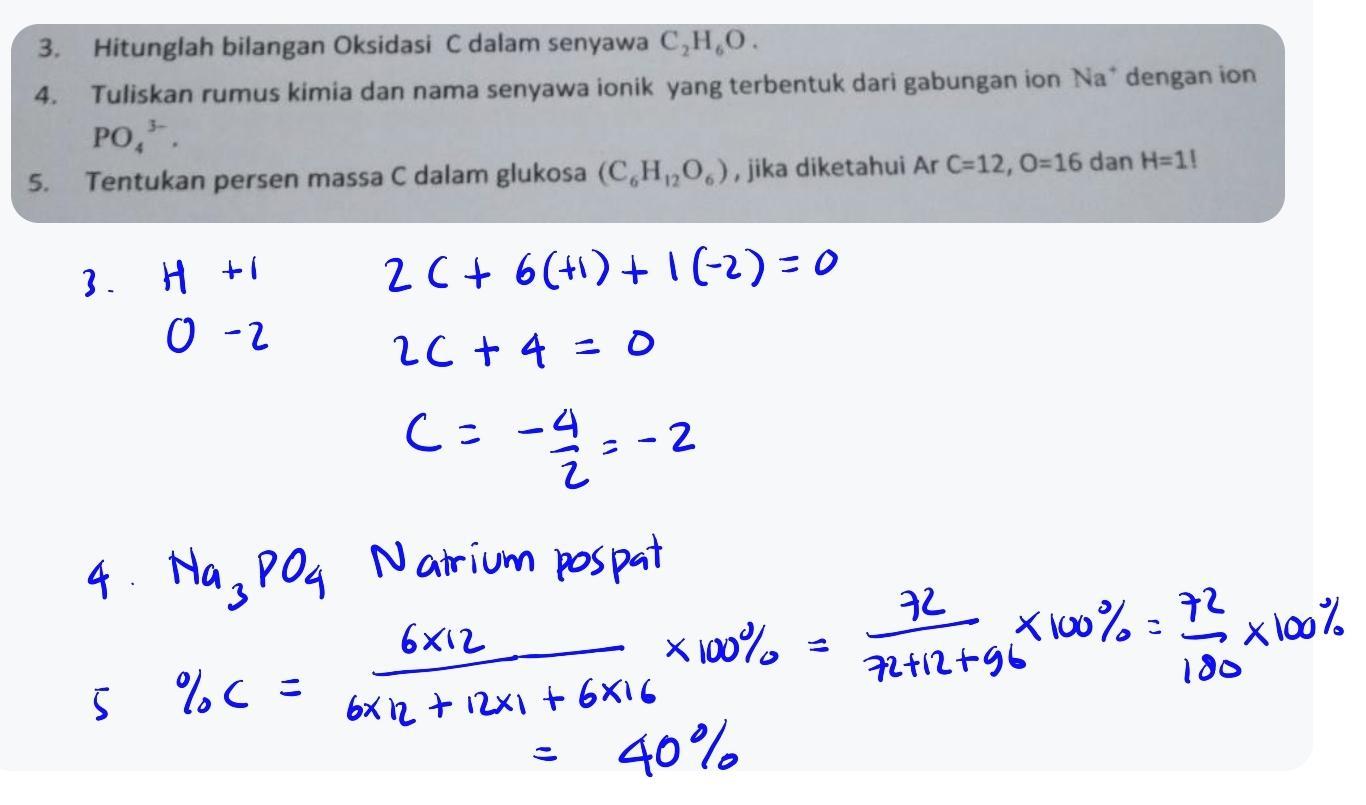 3. Hitunglah bilangan Oksidasi C dalam senyawa C₂H₆O.
4. Tuliskan rumus kimia dan nama senyawa ionik yang terbentuk dari gabungan ion Na⁺ dengan ion
PO₄³⁻.
5. Tentukan persen massa C dalam glukosa (C₆H₁₂O₆), jika diketahui Ar C=12, O=16 dan H=1!
3. H +1 2C + 6(+1) + 1(-2) = 0
O -2 2C + 4 = 0
C = -4/2 = -2
4. Na₃PO₄ Natrium pospat
5 %C = 6x12 / 6x12 + 12x1 + 6x16 x 100% = 72 / 72+12+96 x 100% = 72/180 x 100%
= 40%